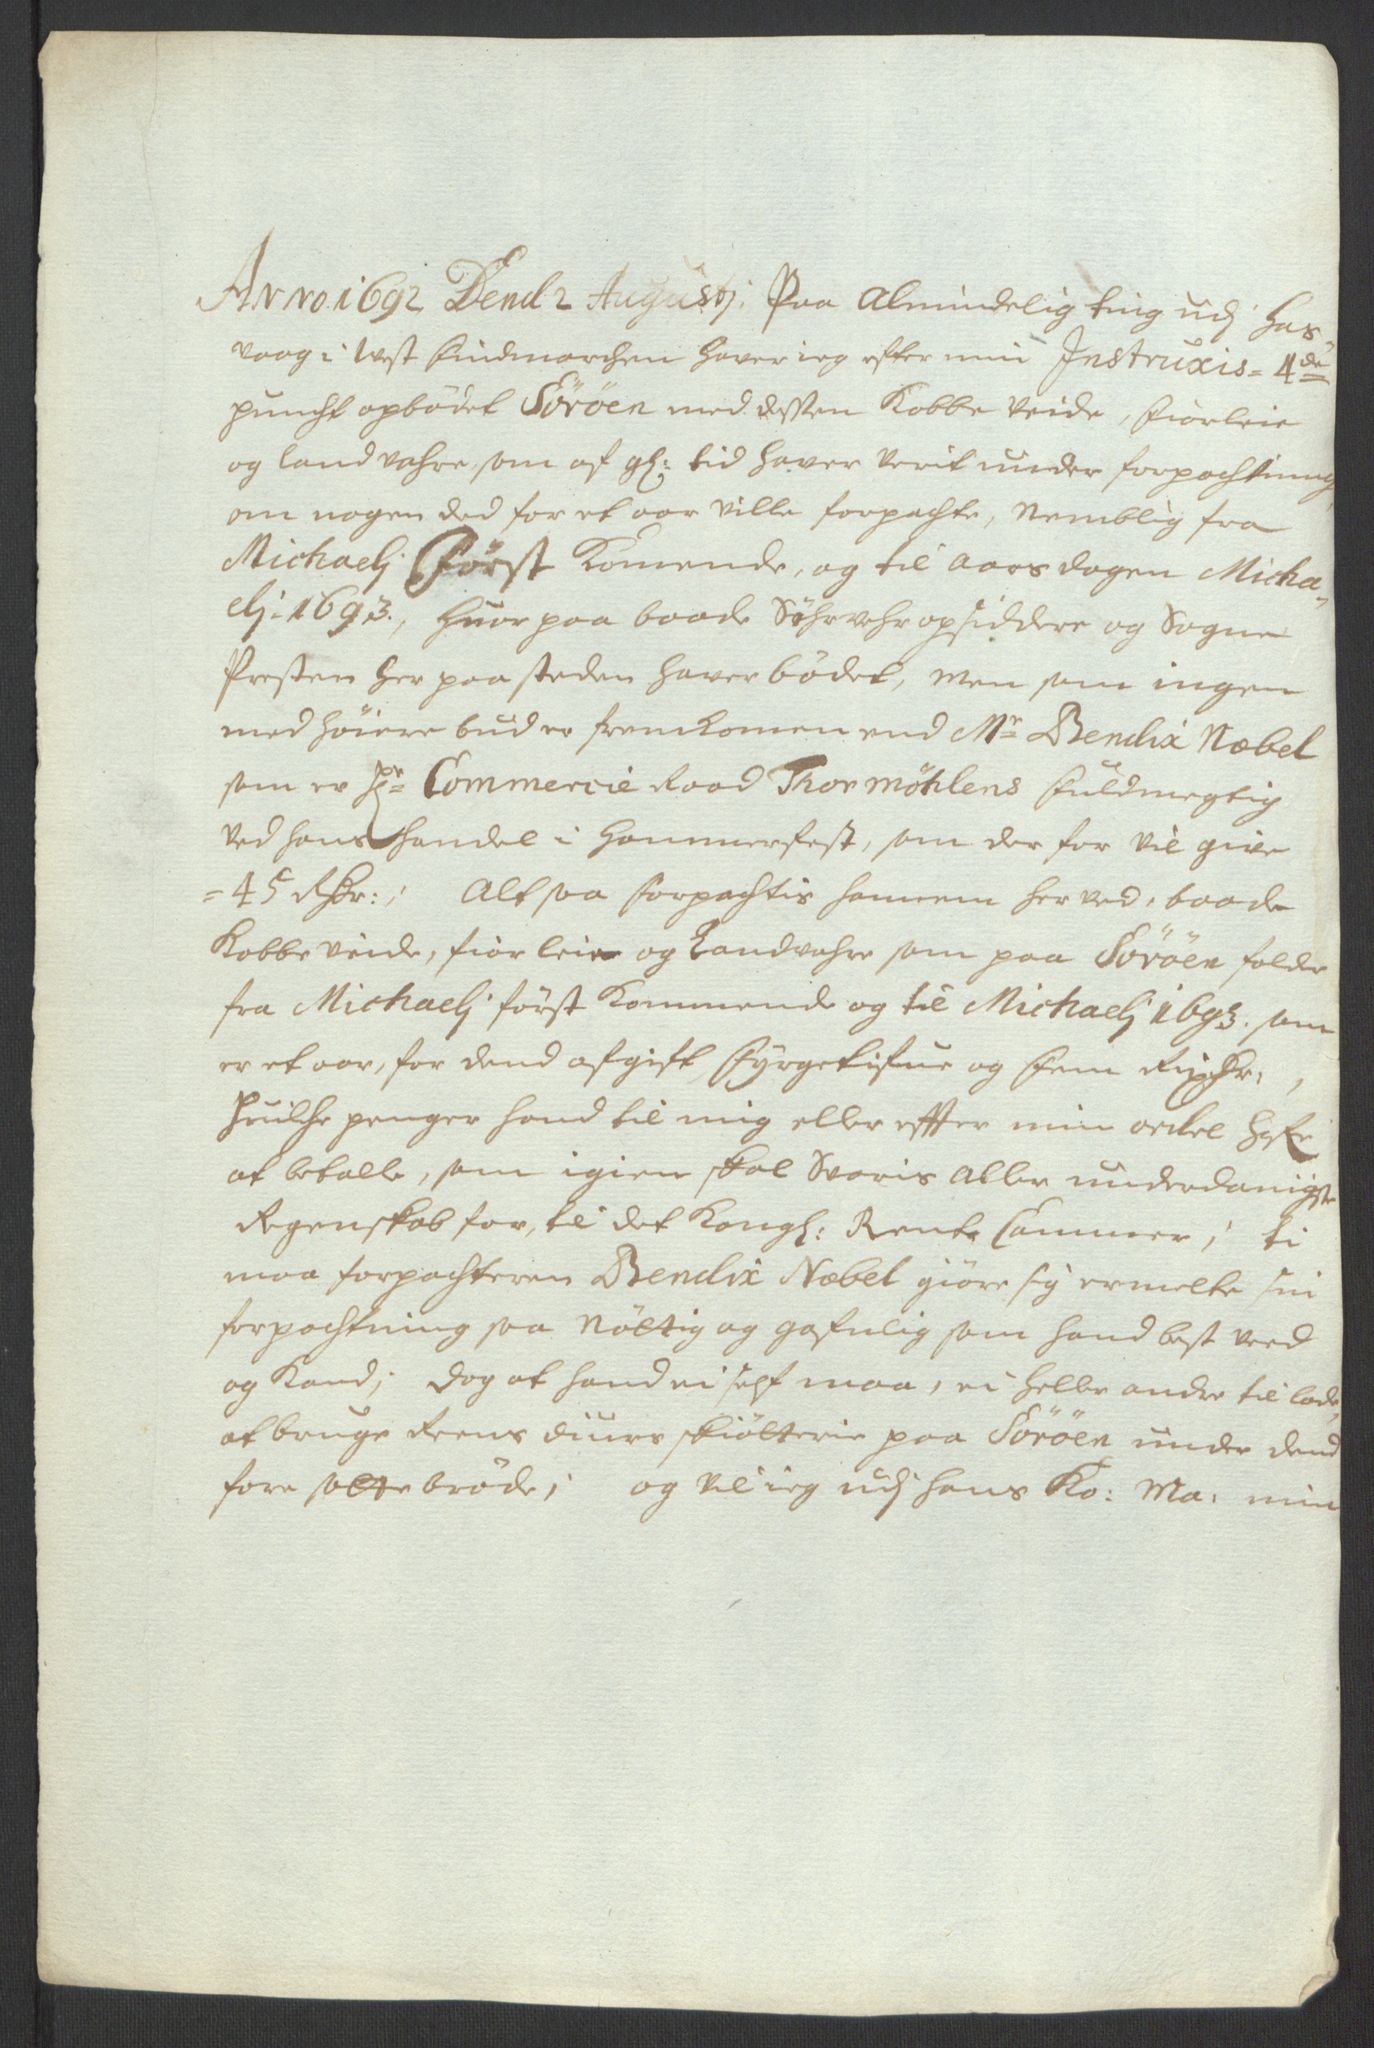 Anno 1692 Dend 2 Augustj: Paa Almindelig ting udj Has-
vaag i West Findmarchen haver ieg efter min Instruxis = 4de
puncht opbödet Söröen med dessen Kobbe veide, fiörleie
og land vahre, som af gl: tid haver verit under forpachtning,
om nogen ded for et aar ville forpachte, Nemblig fra
Michaelj Först Komende, og til aars dagen Micha-
elj: 1693., huor paa baade Söhrvehr opsiddere og Sogne
Presten her paa steden haver bödet, men som ingen
med höiere bud er fremkomen end Mr Bendix Næbel
som er Hr Commercie Raad Thormöhlens fuldmegtig
ved hans handel i Hammerfest, som der for vil give
= 45 Rdr:; Alt saa forpachtis hannem her ved, baade
Kobbe veide, fiörleie og Landvahre som paa Söröen falder
fra Michaelj först Kommende og til Michaelj 1693. som
er et aar, for dend afgift fyrgetifue og fem Rixdr.,
huilche penger hand til mig eller effter min ordre
at betalle, som igien skal svaris aller underdanigste
Regenskab for, til det Kongl: Rente Cammer; ti
maa forpachteren Bendix Næbel giöre sig ermelte sin
forpachtning saa Nöttig og gafnlig som hand best veed
og Kand; dog at hand ei self maa, ei heller andre til lade,
at bruge Reens diurs skiötterie paa Söröen under dend
fore satte bröde; og vil ieg udj hans Ko: Ma: min